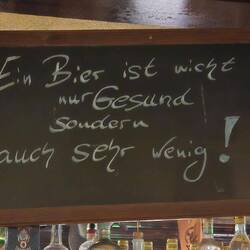 Ein Bier ist nicht
nur Gesund
sondern
auch sehr wenig!